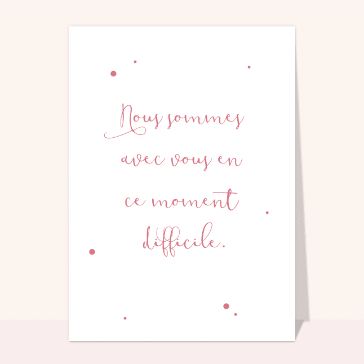 Nous sommes
avec vous en
ce moment
difficile.